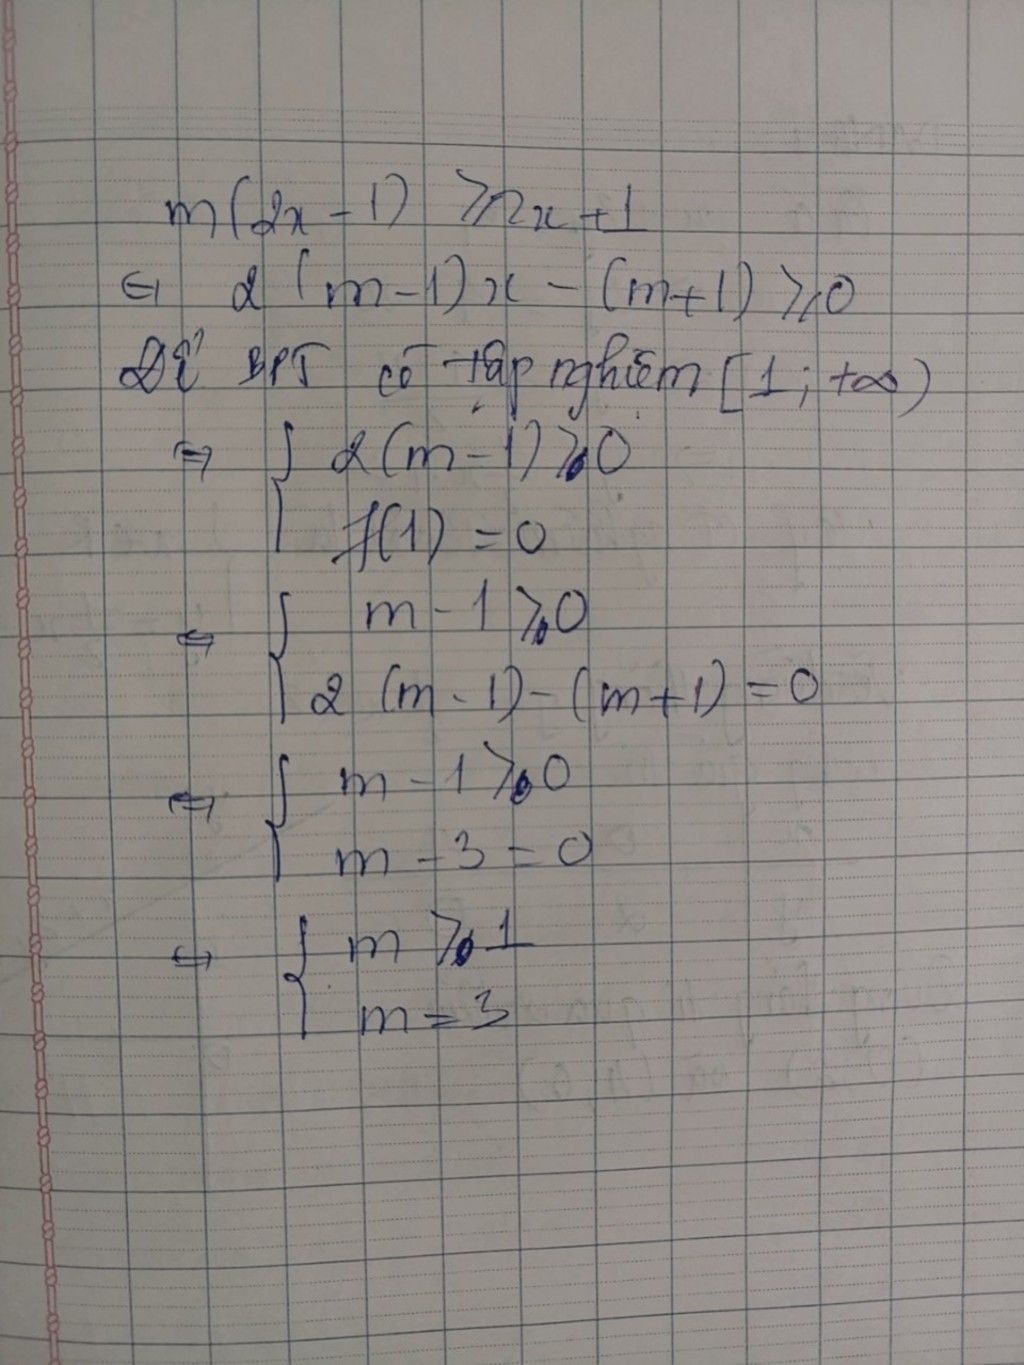 m(2x-1) ⩾ 2x+1
⇔ 2(m-1)x - (m+1) ⩾ 0
Để BPT có tập nghiệm [1; +∞)
⇔ { 2(m-1) ⩾ 0
f(1) = 0
⇔ { m-1 ⩾ 0
2(m-1)-(m+1) = 0
⇔ { m-1 ⩾ 0
m-3 = 0
⇔ { m ⩾ 1
m = 3